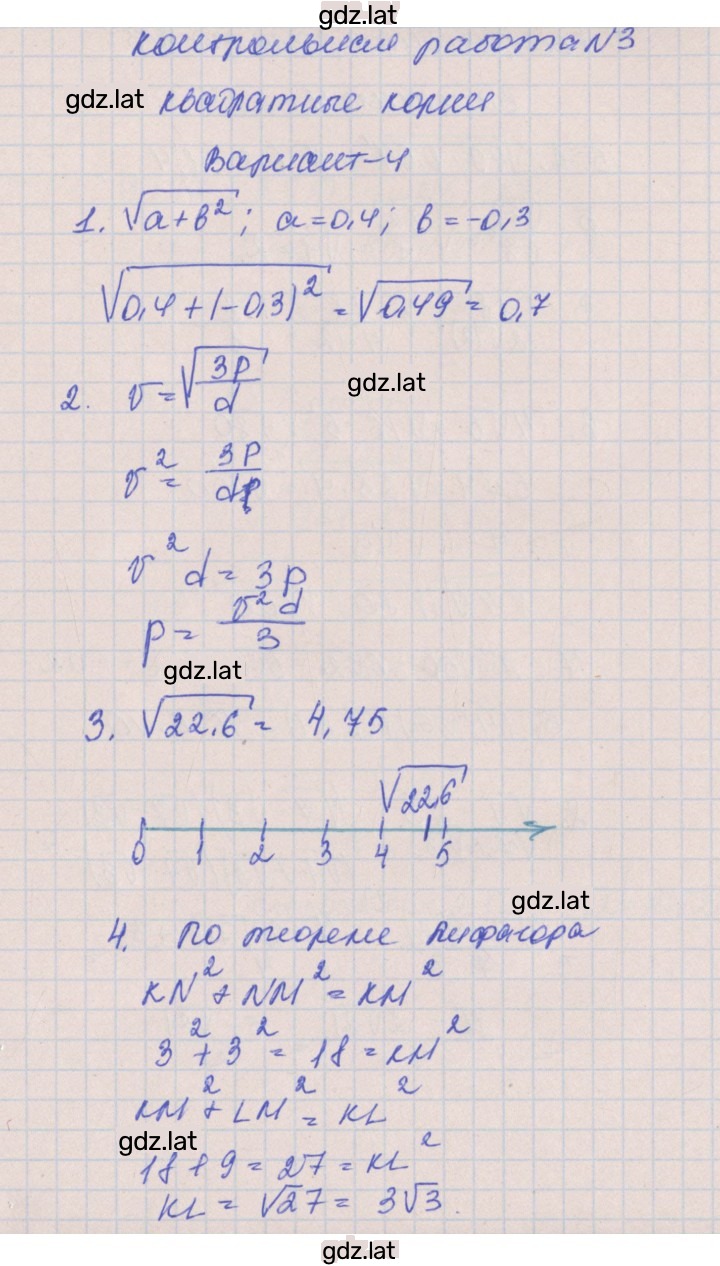 gdz.lat
контрольная работа N3
gdz.lat квадратные корни
Вариант-4
1. √(a+b²); a=0,4; b=-0,3
√(0,4+(-0,3)²) = √0,49 = 0,7
2. v=√(3p/d)
gdz.lat
v² = 3p/d
v²d = 3p
p = v²d/3
gdz.lat
3. √22,6 = 4,75
√22,6
0 1 2 3 4 5
gdz.lat
4. По теореме Пифагора
KN² + NM² = KM²
3² + 3² = 18 = KM²
KM² + LM² = KL²
gdz.lat
18 + 9 = 27 = KL²
KL = √27 = 3√3.
gdz.lat